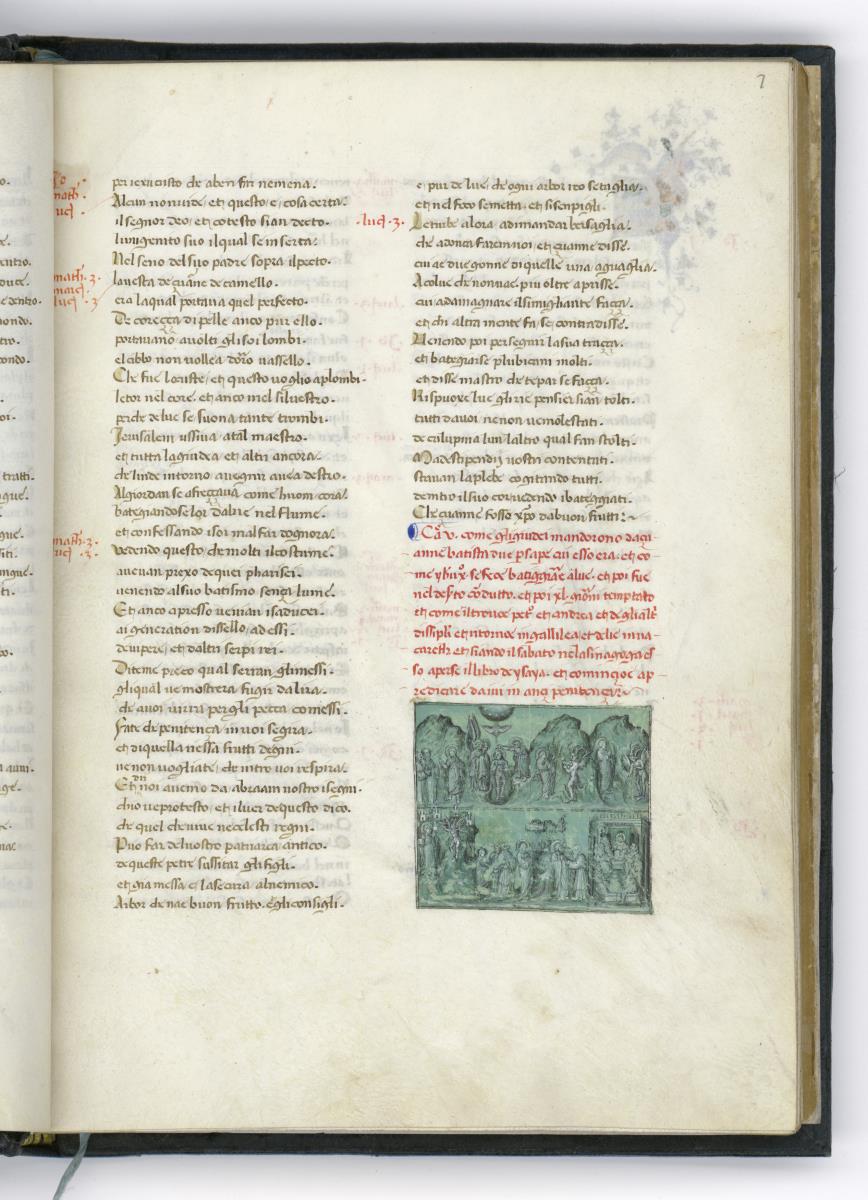 7
per iexu cristo che aben fin nemena.
Alcun non uide et questo e cosa certa.
il segnor deo, et cotesto sian decto.
lunigenito suo il qual se inserta.
Nel seno del suo padre sopra il pecto.
la uesta de çuane de camello.
era la qual portaua quel perfecto.
De coreçça di pelle anco pur ello.
portauano auolti gli soi lombi.
el cibbo non uollea doro uassello.
Che fue locuste, et questo uoglio aplombi.
letor nel core. et anco mel siluestro.
perche de lue se suona tante trombi.
Jerusalem ussiua atal maestro.
et tutta la giudea et altri ancora.
che linde intorno auegnir auea destro.
Al giordan se afreççaua come huom cora.
bategiandose lor dalue nel flume.
et confessando i soi mal far dognora.
Vedendo questo che molti il costume.
aueuan prexo de quei pharisei.
uenendo al suo batismo sença lume.
Et anco apresso uenian i saducei.
ai generation dissello, ad essi.
de uipere, et daltri serpi rei.
Diteme preco qual serran gli messi.
gli qual ue mostrera fugir da lira.
che auoi uirra per gli pecca comessi.
Fate che penitença in uoi segira.
et di quella nessa frutti degni.
ne non uogliate, che intro uoi respira.
Et noi auemo da abraam nostro i segni.
chio ue protesto, et il uer de questo dico.
che quel che uiue ne celesti regni.
Puo far del uostro patriarca antico.
de queste petre sussitar gli figli.
et gia messa e la secura al nemico.
Arbor che nae buon frutto. e gli consigli.
math. 3.
marci.
luci. 3
math. 3.
luci. 3.
e pur de lue, che ogni arbor reo se taglia.
et nel foco se metta, et si scnpigli.
luci. 3.
Le turbe alora adimandar bersaglia.
che adonca faremo noi et çuanne disse.
cui ae due gonne di quelle una aguaglia.
A colue che non nae. piu oltre aprisse.
cui ada magnare il simigliante facça.
et chi altra mente fa, se contradisse.
Venendo poi per seguir la sua tracça.
et bateçarse plubicani molti.
et disse mastro che te par se facça.
Rispuoxe lue gli rie pensier sian tolti.
tutti da uoi ne non ue molestati.
de calupnia lun laltro qual fan stolti.
Ma de stipendij uostri contentati.
stauan la plebe cogitando tutti.
dentro il suo cor uedendo i bateggiati.
Che çuanne fosse xpo da buon frutti
Ca. v. come gli giudei mandorono da çu-
anne batista due per sape cui esso era. et co-
me yhu xo. se fece bateggiare a lue. et poi fue
nel deserto conduto. et poi xl. giorni temptato
et come il troue petro et andrea et de gli altri
dissipuli et intorno in gallilea. et de lie in na-
careth et stando il sabato ne la sinagoga es-
so aperse il libro de ysaya. et cominçoe ap-
redicare da iui in anci penitençia